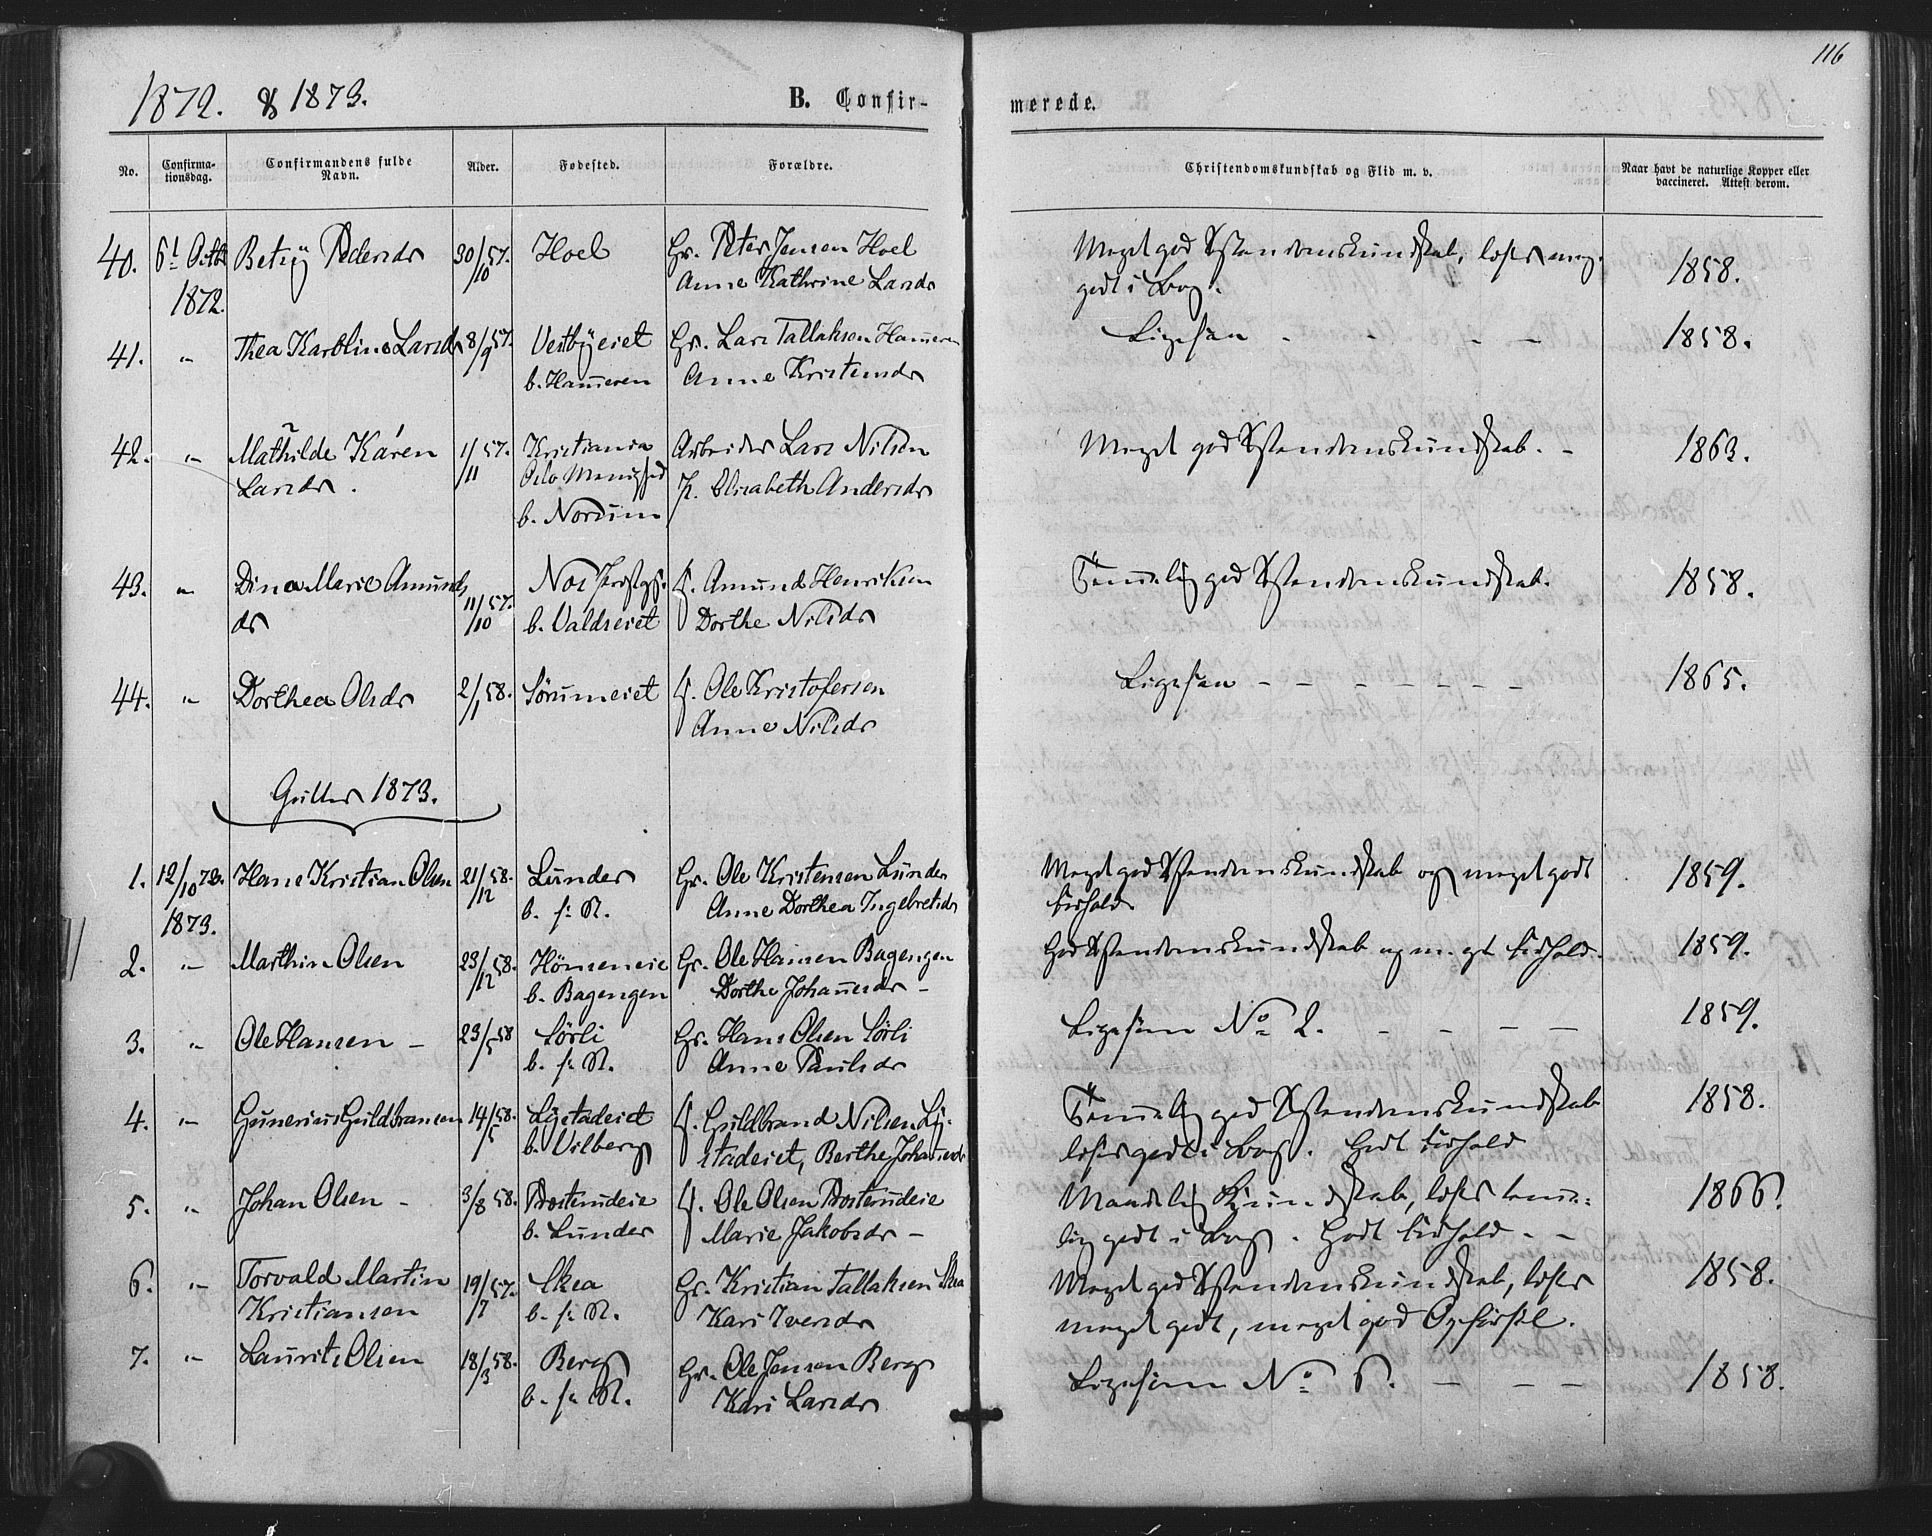 116
1872. & 1873.
B. Confir-
merede.
No.
Confirma-
tionsdag.
Confirmandens fulde
Navn.
Alder.
Fødested.
Forældre.
Christendomskundskab og Flid m. v.
Naar havt de naturlige Kopper eller
vaccineret. Attest derom.
40. 6t Octb Betsy Pedersdr 30/10 57. Hoel Gr. Peter Jensen Hoel Meget god Xstendomskundskab, læser meg.
1872. Anne Kathrine Larsdr godt i Bog. 1858.
41. " Thea Karoline Larsdr 8/9 57. Vestbyeiet Gr. Lars Tallaksen Hameren Ligesaa - - - - 1858.
b. Hameren Anne Kristensdr
42. " Mathilde Karen 1/11 57. Kristiania Arbeider Lars Nilsen Meget god Xstendomskundskab. - 1863.
Larsdr. Oslo Menighed K. Elisabeth Andersdr
b. Nordum
43. " Dina Marie Amunds 11/10 57. Nes Præstegj. F. Amund Henriksen Temmelig god Xstendomskundskab. 1858.
dr b. Valdseiet Dorthe Nilsdr
44. " Dorthea Olsdr 2/1 58. Sørumeiet F. Ole Kristofersen Ligesaa - - - - - - 1865.
Anne Nilsdr
Gutter 1873.
1. 12/10 73. Hans Kristian Olsen 21/12 58. Lunder Gr. Ole Kristensen Lunder Meget god Xstendomskundskab og meget godt 1859.
1873. b. s. St. Anne Dorthea Ingebretsdr Forhold.
2. " Marthin Olsen 23/12 58. Hönseneie Gr. Ole Hansen Bagengen God Xstendomskundskab og m. gt Forhold. 1859.
b. Bagengen Dorthe Johanesdr -
3. " Ole Hansen - 23/5 58 Sörli Gr. Hans Olsen Sörli Ligesom No 2. - - - - 1859.
b. s. St. Anne Paulsdr
4. " Gunerius Guldbransen 14/5 58. Lystadeiet F. Guldbrand Nilsen Ly- Temmelig god Xstendomskundskab 1858.
b. Vilberg stadeiet, Berthe Johanesdr læser godt i Bog. Godt Forhold
5. " Johan Olsen - 3/8 58. Prosterudeie F. Ole Olsen Prosterudeie Maadelig Kundskab, læser temme- 1866.
b. Lunder Marie Jakobsdr - lig godt i Bog. Godt Forhold. - -
6. " Torvald Martin 19/7 57. Skea Gr. Kristian Tallaksen Skea Meget god Xstendomskundskab, læser 1858.
Kristiansen b. s. St. Kari Iversdr meget godt, meget god Opførsel.
7. " Laurits Olsen 18/3 58. Berg Gr. Ole Jensen Berg Ligesom No 6. - - - 1858.
b. s. St. Kari Larsdr